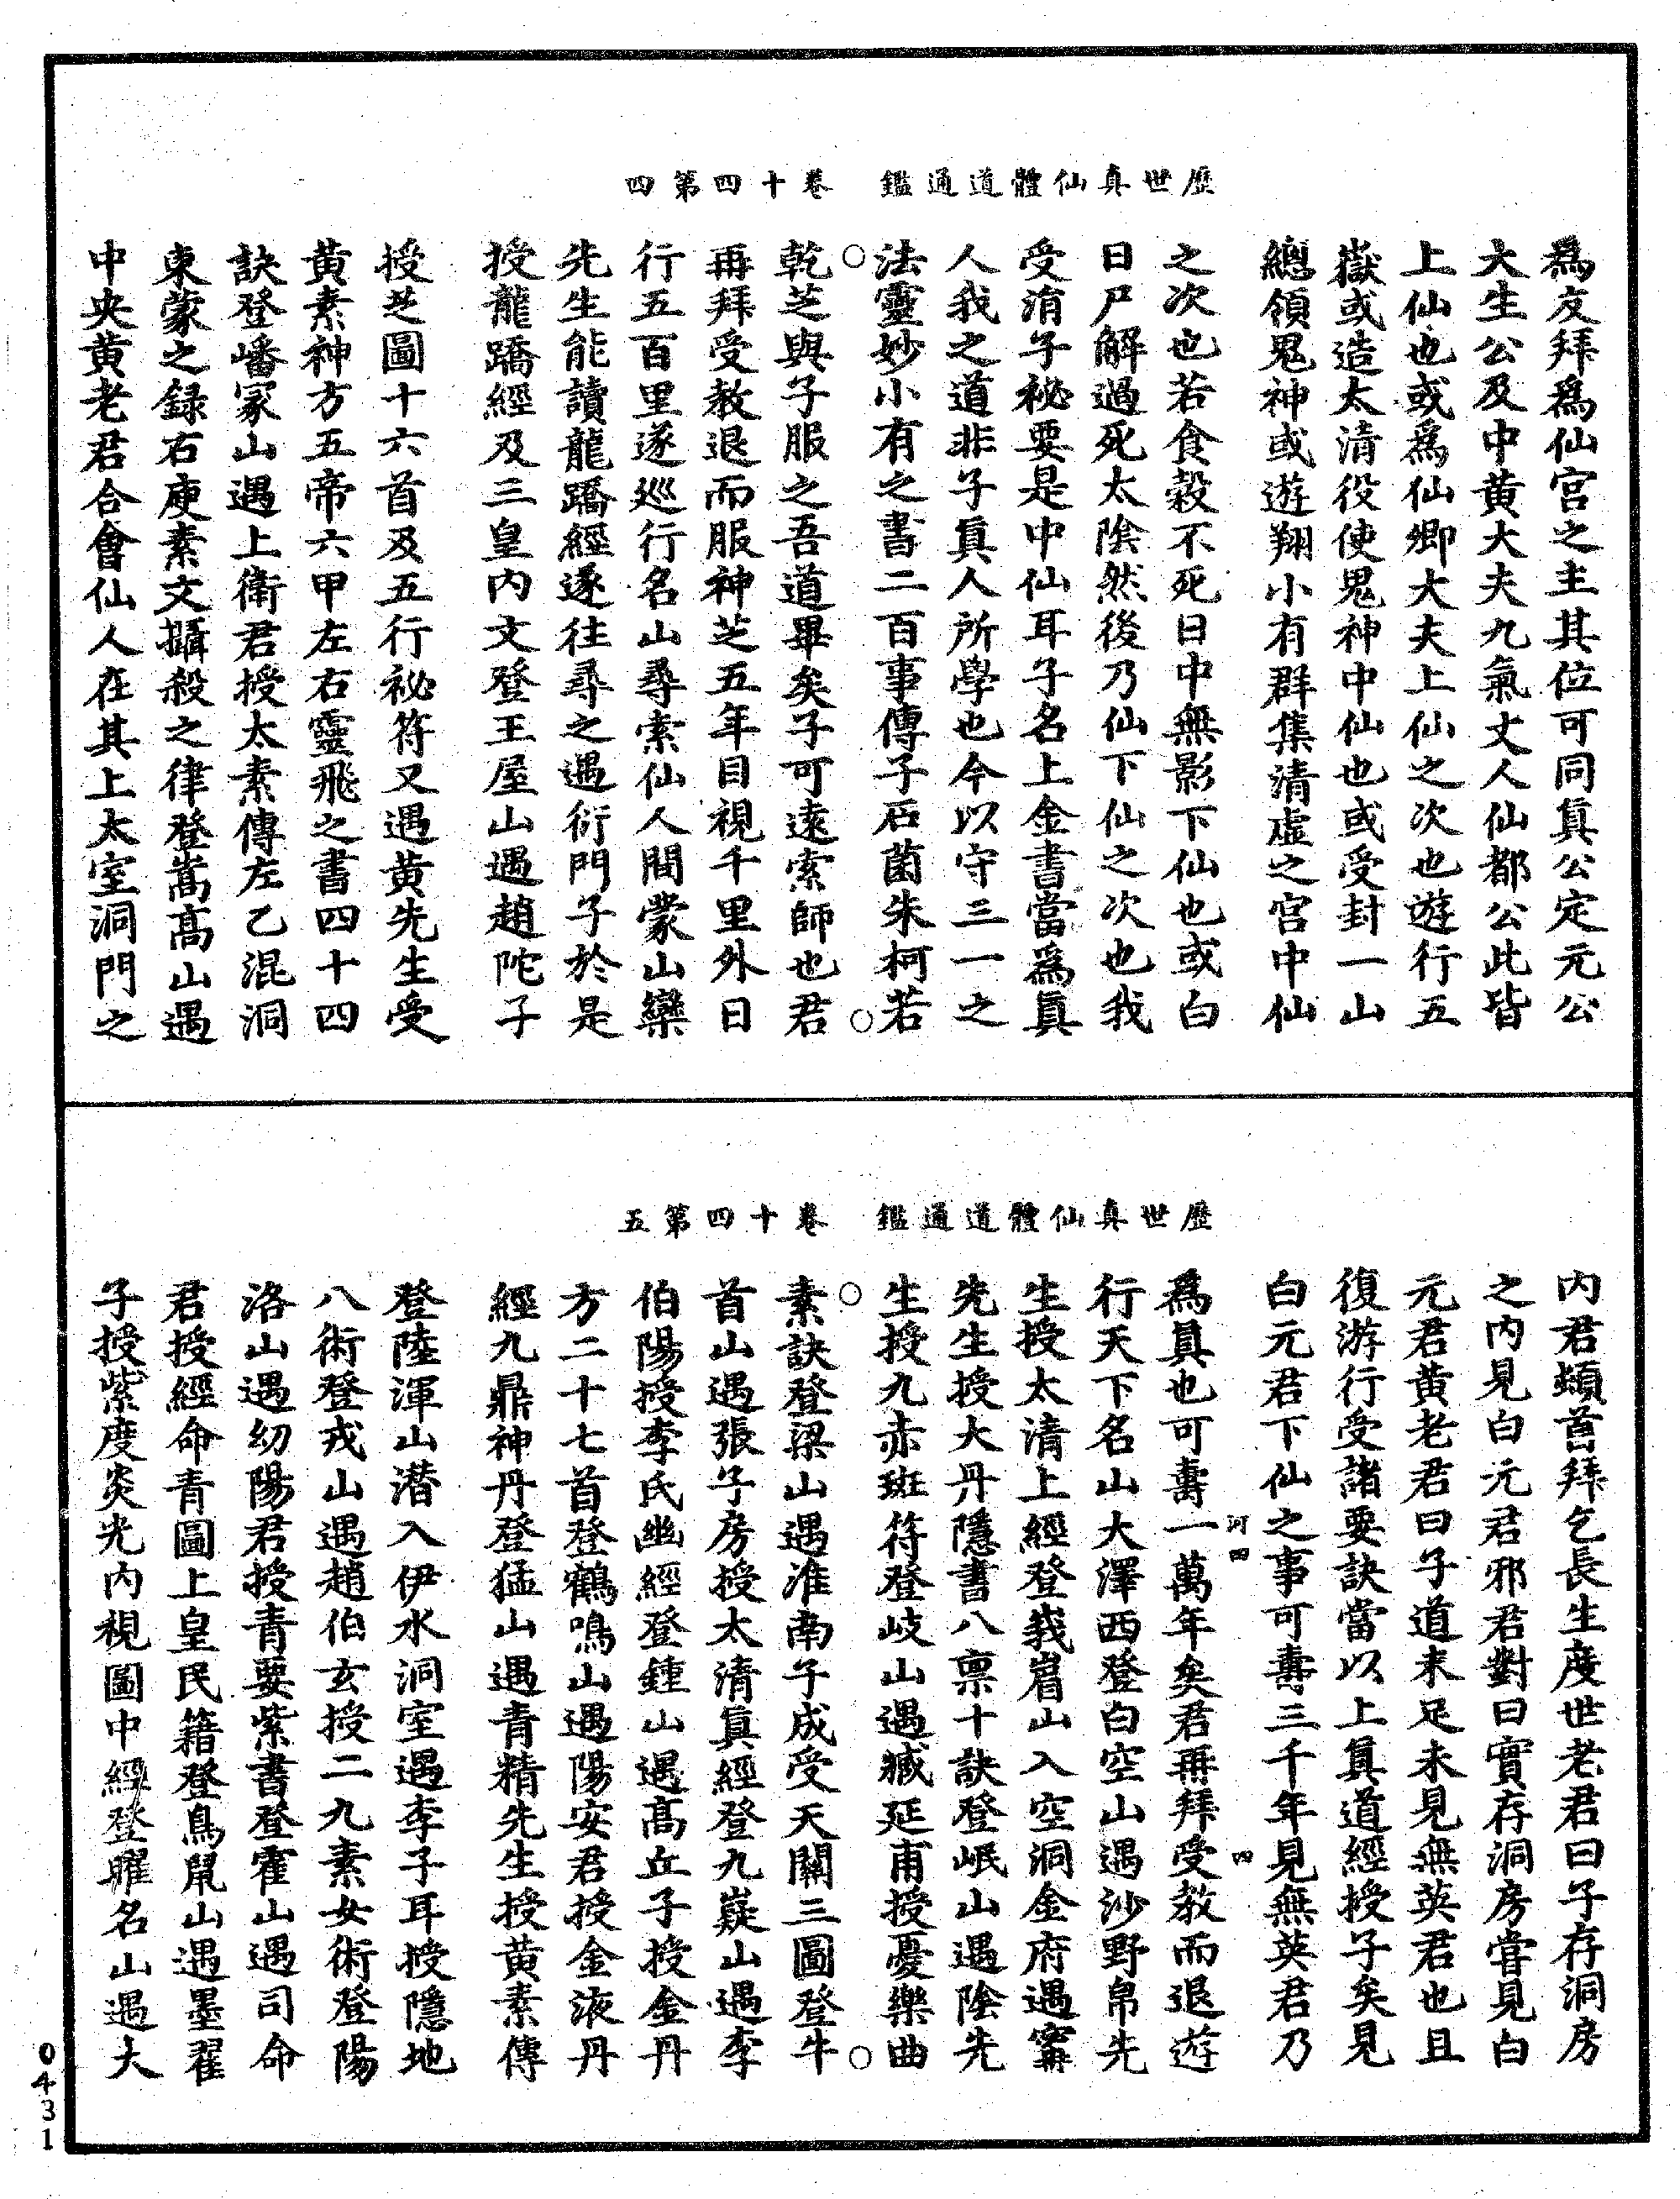 歷世真仙體道通鑑　卷十四第四
爲友拜爲仙宮之主其位可同眞公定元公
大生公及中黄大夫九氣丈人仙都公此皆
上仙也或爲仙卿大夫上仙之次也遊行五
嶽或造太清役使鬼神中仙也或受封一山
總領鬼神或遊翔小有群集清虛之宮中仙
之次也若食穀不死日中無影下仙也或白
日尸解過死太陰然後乃仙下仙之次也我
受涓子祕要是中仙耳子名上金書當爲眞
人我之道非子眞人所學也今以守三一之
法靈妙小有之書二百事傳子石菌朱柯若
乾芝與子服之吾道畢矣子可遠索師也君
再拜受教退而服神芝五年目視千里外日
行五百里遂廵行名山尋索仙人聞蒙山欒
先生能讀龍蹻經遂往尋之遇衍門子於是
授龍蹻經及三皇内文登王屋山遇趙陀子
授芝圖十六首及五行祕符又遇黄先生受
黄素神方五帝六甲左右靈飛之書四十四
訣登嶓冢山遇上衛君授太素傳左乙混洞
東蒙之録右庚素文攝殺之律登嵩髙山遇
中央黄老君合會仙人在其上太室洞門之
歷世真仙體道通鑑　卷十四第五
内君頓首拜乞長生度世老君曰子存洞房
之内見白元君邪君對曰實存洞房嘗見白
元君黄老君曰子道未足未見無英君也且
復游行受諸要訣當以上眞道經授子矣見
白元君下仙之事可壽三千年見無英君乃
河四　四
爲眞也可壽一萬年矣君再拜受教而退遊
行天下名山大澤西登白空山遇沙野帛先
生授太清上經登峩眉山入空洞金府遇甯
先生授大丹隱書八禀十訣登岷山遇陰先
生授九赤斑符登岐山遇臧延甫授憂樂曲
素訣登梁山遇淮南子成受天關三圖登牛
首山遇張子房授太清眞經登九嶷山遇李
伯陽授李氏幽經登鍾山遇髙丘子授金丹
方二十七首登鶴鳴山遇陽安君授金液丹
經九鼎神丹登猛山遇青精先生授黄素傳
登陸渾山潜入伊水洞室遇李子耳授隱地
八術登戎山遇趙伯玄授二九素女術登陽
洛山遇幼陽君授青要紫書登霍山遇司命
君授經命青圖上皇民籍登鳥鼠山遇墨翟
子授紫度炎光内視圖中經登曜名山遇大
0431